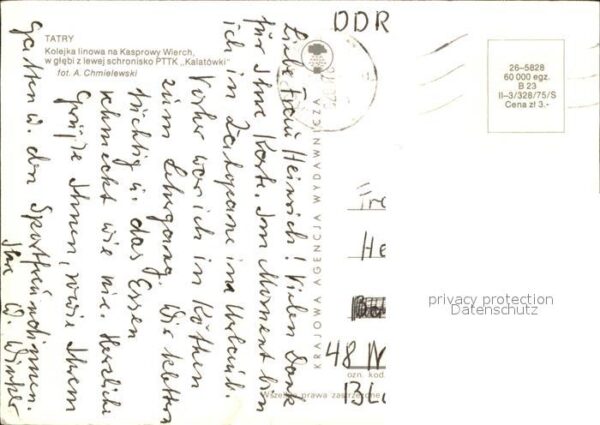 TATRY
Kolejka linowa na Kasprowy Wierch,
w głębi z lewej schronisko PTTK „Kalatówki"
fot. A. Chmielewski
DDR
26–5828
60 000 egz.
B 23
II–3/328/75/S
Cena zł 3.-
KRAJOWA AGENCJA WYDAWNICZA
Liebe Frau Heinrich! Vielen Dank
für Ihre Karte. Im Moment bin
ich in Zakopane im Urlaub.
Vorher war ich in Köthen
zum Lehrgang. Wir klettern
tüchtig u. das Essen
schmeckt wie nie. Herzliche
Grüße Ihnen, sowie Ihrem
Gatten u. den Sportfreundinnen.
Ihre
Fre
He
48 N
ozn. kod.
BLe
Wszelkie prawa zastrzeżone
privacy protection
Datenschutz